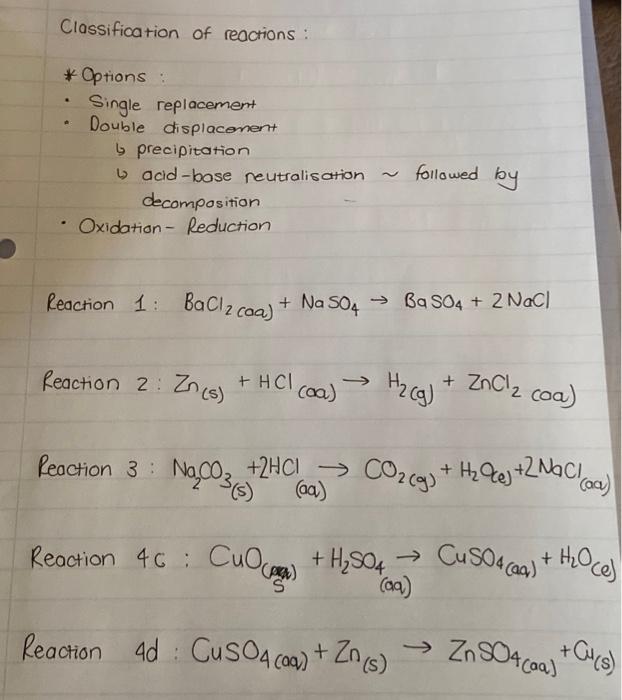 Classification of reactions :
* Options :
• Single replacement
• Double displacement
↳ precipitation
↳ acid-base neutralisation ~ followed by
decomposition
• Oxidation - Reduction
Reaction 1 : BaCl₂ (aq) + NaSO₄ → BaSO₄ + 2NaCl
Reaction 2 : Zn(s) + HCl (aq) → H₂(g) + ZnCl₂ (aq)
Reaction 3 : Na₂CO₃(s) + 2HCl (aq) → CO₂(g) + H₂O(l) + 2NaCl(aq)
Reaction 4c : CuO(s) + H₂SO₄ (aq) → CuSO₄(aq) + H₂O(l)
Reaction 4d : CuSO₄(aq) + Zn(s) → ZnSO₄(aq) + Cu(s)